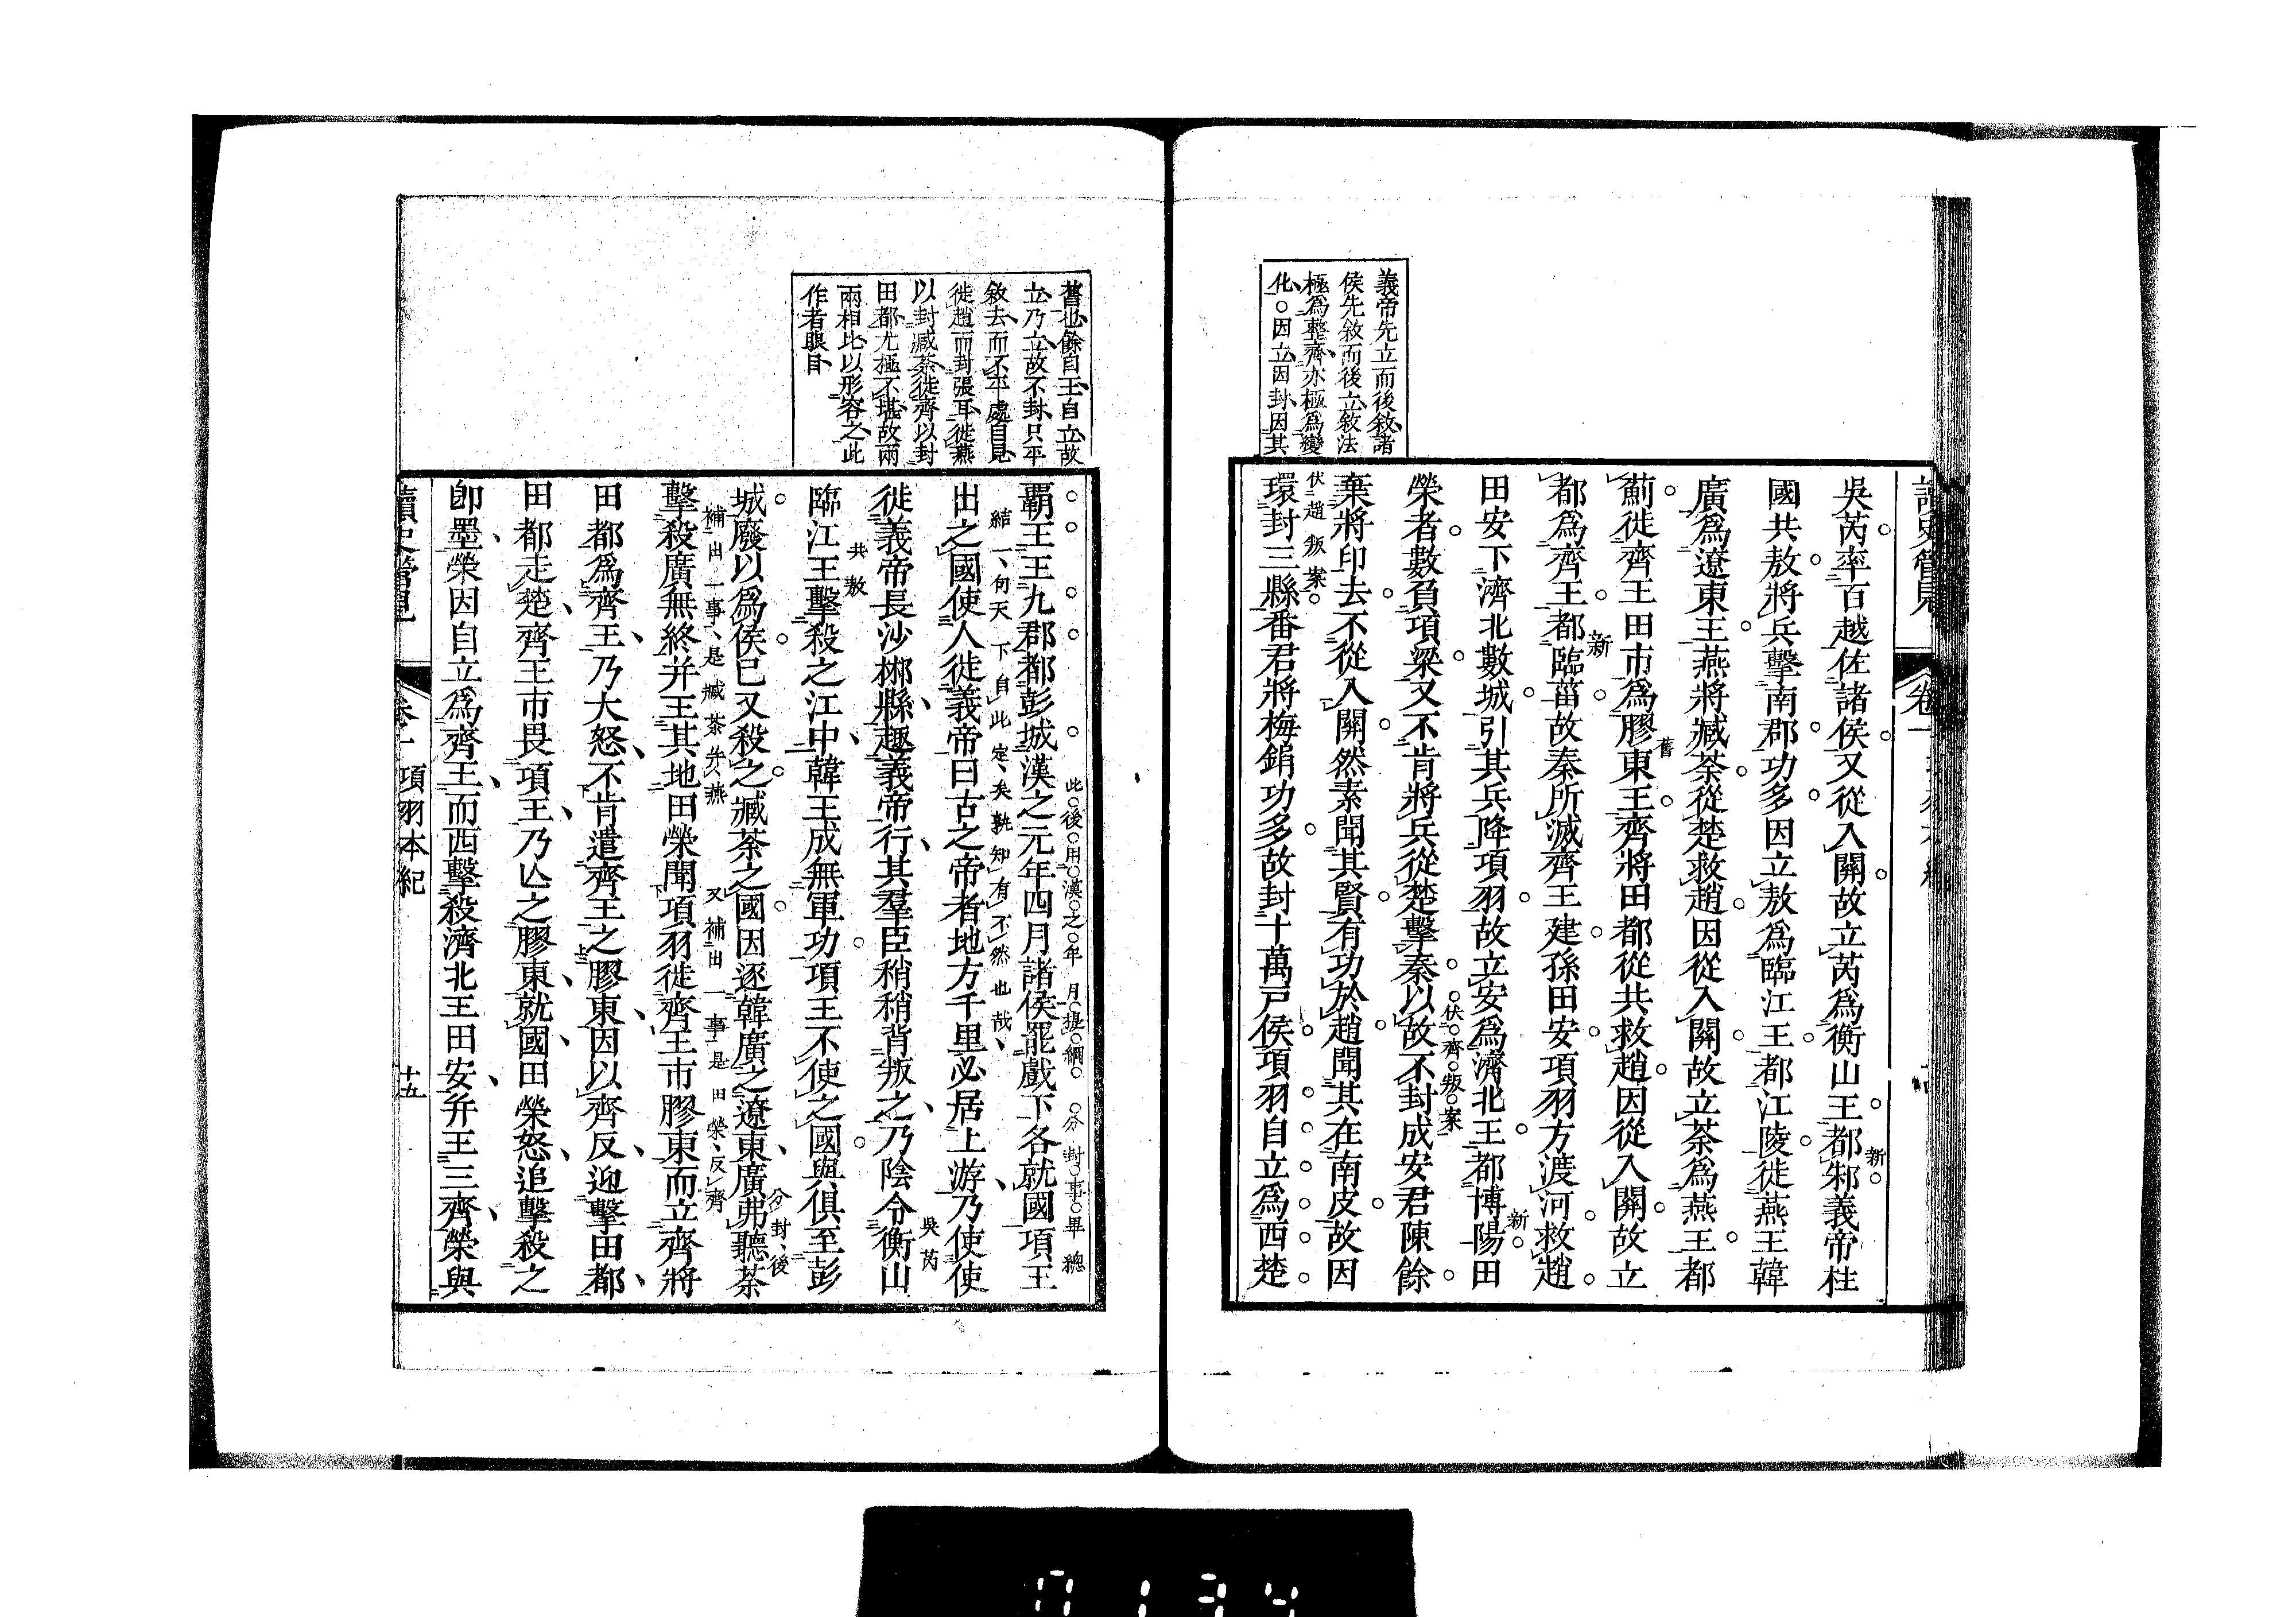 義帝先立而後敘諸
侯先敘而後立敘法
極爲整齊亦極爲變
化○因立因封因其
吳芮率百越佐諸侯又從入關故立芮爲衡山王都邾義帝柱
新
國共敖將兵擊南郡功多因立敖爲臨江王都江陵徙燕王韓
廣爲遼東王燕將臧荼從楚救趙因從入關故立荼爲燕王都
薊徙齊王田市爲膠東王齊將田都從共救趙因從入關故立
舊
都爲齊王都臨菑故秦所滅齊王建孫田安項羽方渡河救趙
新
田安下濟北數城引其兵降項羽故立安爲濟北王都博陽田
新
榮者數負項梁又不肯將兵從楚擊秦以故不封成安君陳餘
伏齊叛案
棄將印去不從入關然素聞其賢有功於趙聞其在南皮故因
環封三縣番君將梅鋗功多故封十萬戸侯項羽自立爲西楚
伏趙叛案
讀史管見
卷一
舊也餘自王自立故
立乃立故不封只平
敘去而不平處自見
徙趙而封張耳徙燕
以封臧荼徙齊以封
田都尤極不堪故兩
兩相比以形容之此
作者眼目
此後用漢之年月提綱 分封事畢總
霸王王九郡都彭城漢之元年四月諸侯罷戲下各就國項王
結一句天下自此定矣孰知有不然也哉
出之國使人徙義帝曰古之帝者地方千里必居上游乃使使
徙義帝長沙郴縣趣義帝行其羣臣稍稍背叛之乃陰令衡山
吳芮
共敖
臨江王擊殺之江中韓王成無軍功項王不使之國與俱至彭
城廢以爲侯已又殺之臧荼之國因逐韓廣之遼東廣弗聽荼
分封後
補出一事是臧荼并燕 又補出一事是田榮反齊
擊殺廣無終并王其地田榮聞項羽徙齊王市膠東而立齊將
田都爲齊王乃大怒不肯遣齊王之膠東因以齊反迎擊田都
田都走楚齊王市畏項王乃亡之膠東就國田榮怒追擊殺之
卽墨榮因自立爲齊王而西擊殺濟北王田安并王三齊榮與
讀史管見 卷一 項羽本紀 十五
0134